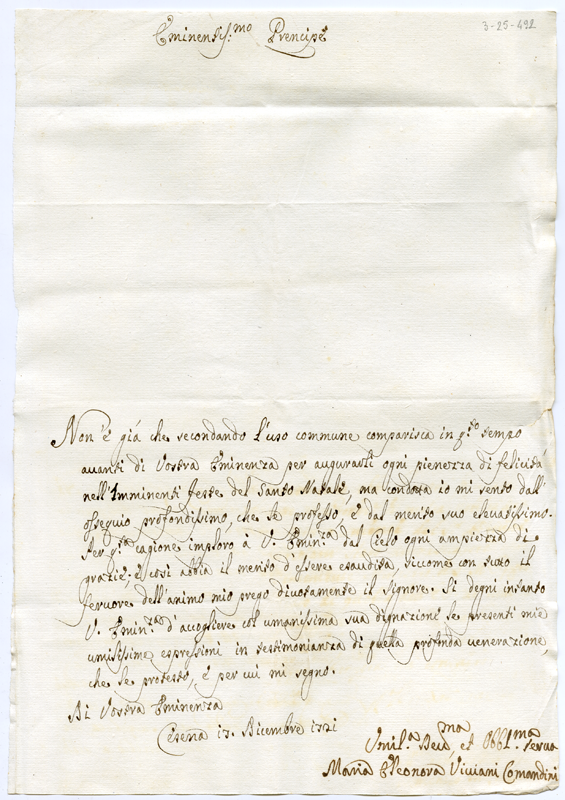 3-25-492
Eminentis.mo Prencipe
Non è già che secondando l'uso commune comparisca in q.to tempo
avanti di Vostra Eminenza per augurarli ogni pienezza di felicità
nell'Imminenti feste del Santo Natale, ma condotta io mi sento dall'
ossequio profondissimo, che le professo, e dal merito suo elevatissimo.
Per q.ta cagione imploro à V. Emin.za dal Cielo ogni ampiezza di
grazie; e così abbia il merito d'essere esaudita, siccome con tutto il
fervore dell'animo mio prego divotamente il Signore. Si degni intanto
V. Emin.za d'accogliere col umanissima sua dignazione le presenti mie
umilissime espressioni in testimonianza di quella profonda venerazione
che le protesto, e per cui mi segno.
Di Vostra Eminenza
Cesena Dicembre
Umil.a Dev.ma et Obbl.ma serva
Maria Eleonora Viviani Comandini